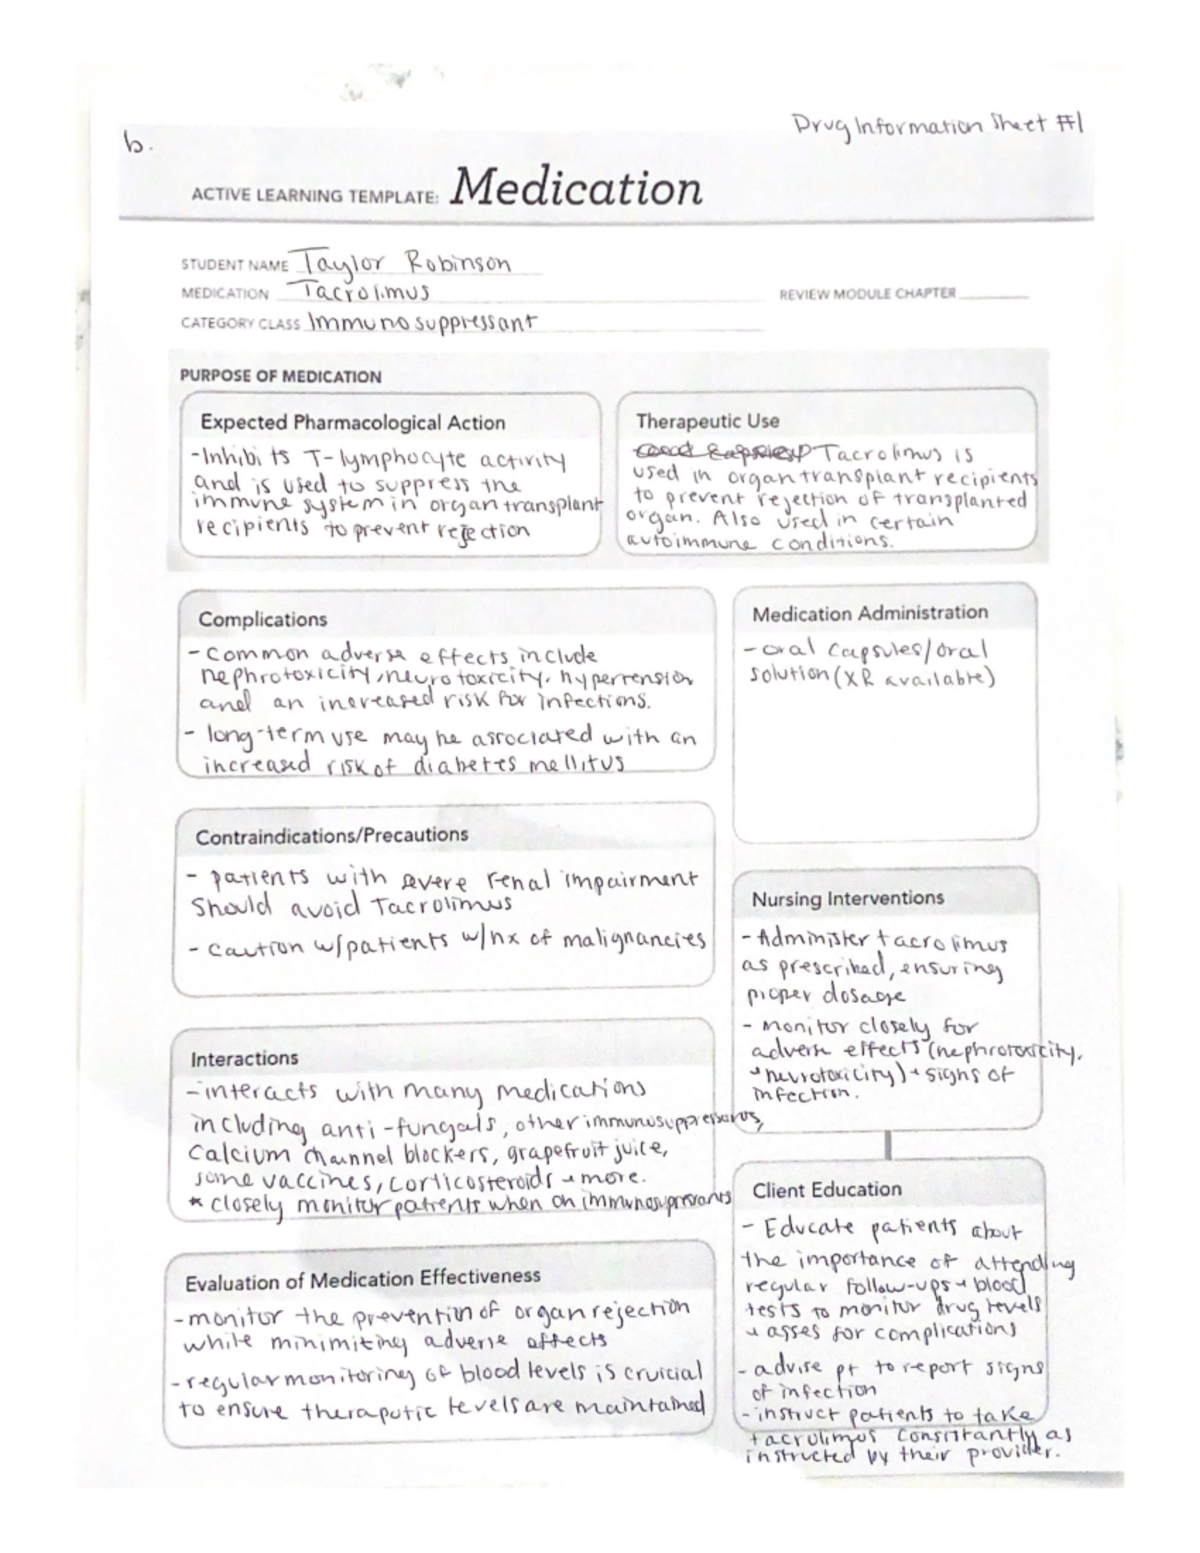 Drug Information Sheet #1
b.
ACTIVE LEARNING TEMPLATE: Medication
STUDENT NAME Taylor Robinson
MEDICATION Tacrolimus
REVIEW MODULE CHAPTER
CATEGORY CLASS Immunosuppressant
PURPOSE OF MEDICATION
Expected Pharmacological Action
-Inhibits T-lymphocyte activity
and is used to suppress the
immune system in organ transplant
recipients to prevent rejection
Therapeutic Use
Tacrolimus is
used in organ transplant recipients
to prevent rejection of transplanted
organ. Also used in certain
autoimmune conditions.
Complications
- common adverse effects include
nephrotoxicity, neurotoxicity, hypertension
and an increased risk for infections.
- long-term use may be associated with an
increased risk of diabetes mellitus
Medication Administration
- oral capsules/oral
solution (XR available)
Contraindications/Precautions
- patients with severe renal impairment
should avoid Tacrolimus
- caution w/patients w/hx of malignancies
Nursing Interventions
- Administer tacrolimus
as prescribed, ensuring
proper dosage
- monitor closely for
adverse effects (nephrotoxicity,
+ neurotoxicity) + signs of
infection.
Interactions
- interacts with many medications
including anti-fungals, other immunosuppressants,
Calcium channel blockers, grapefruit juice,
some vaccines, corticosteroids + more.
* closely monitor patients when on immunosupressants
Client Education
- Educate patients about
the importance of attending
regular follow-ups + blood
tests to monitor drug levels
+ asses for complications
- advise pt to report signs
of infection
- instruct patients to take
tacrolimus consistantly as
instructed by their provider.
Evaluation of Medication Effectiveness
- monitor the prevention of organ rejection
while minimiting adverse effects
- regular monitoring of blood levels is cruicial
to ensure theraputic levels are maintained